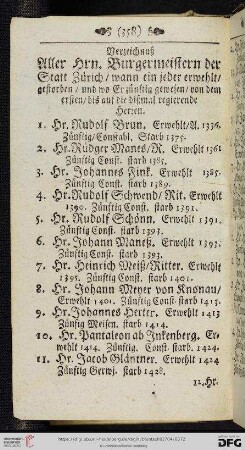 (358)
Verzeichnuß
Aller Hrn. Burgermeistern der
Statt Zürich / wann ein jeder erwehlt /
gestorben / und wo Er zünftig gewesen / von dem
ersten / bis auf die dißmal regierende
Herren.
1. Hr. Rudolf Brun. Erwehlt / A. 1336.
Zünftig / Constabl. Starb 1375.
2. Hr. Rüdger Manes / R. Erwehlt 1361
Zünftig Const. starb 1385.
3. Hr. Johannes Fink. Erwehlt 1385.
Zünftig Const. starb 1389.
4. Hr. Rudolf Schwend / Rit. Erwehlt
1390. Zünftig Const. starb 1391.
5. Hr. Rudolf Schönn. Erwehlt 1391.
Zünftig Const. starb 1393.
6. Hr. Johann Maneß. Erwehlt 1393.
Zünftig Const. starb 1393.
7. Hr. Heinrich Meiß / Ritter. Erwehlt
1393. Zünftig Const. starb 1401.
8. Hr. Johann Meyer von Knonau /
Erwehlt 1401. Zünftig Const. starb 1413.
9. Hr. Johannes Herter. Erwehlt 1413
Zünftig Meisen. starb 1414.
10. Hr. Pantaleon ab Inkenberg. Er-
wehlt 1414. Zünftig. Const. starb. 1424.
11. Hr. Jacob Gläntner. Erwehlt 1424
Zünftig Gerwi. starb 1428.
12. Hr.
DFG